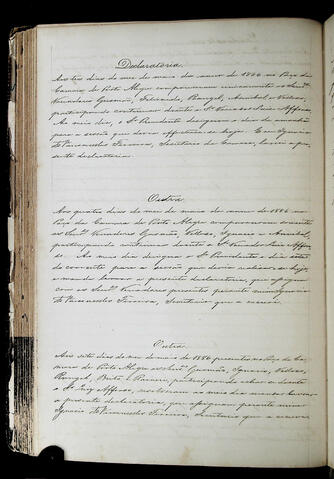 Declaratoria.
Aos tres dias do mez de maio do anno de 1886 no Paço da
Camara de Porto Alegre compareceram unicamente os Senrs.
Vereadores Gusmão, Rangel, Annibal e Velloso,
participando continuar doente o Sr. Vereador Luiz Affonso.
Ao meio dia, o Sr. Presidente designou o dia de amanhã
para a sessão que devia effectuar-se hoje. E eu Ignacio
de Vasconcellos Ferreira, Secretario da Camara, lavrei a pre-
sente declaratoria.
Outra.
Aos quatro dias do mez de maio do anno de 1886 no
Paço da Camara de Porto Alegre compareceram somente
os Senrs. Vereadores Gusmão, Velloso, Ignacio e Annibal,
participando continuar doente o Sr. Vereador Luiz Affon-
so. Ao meio dia designa o Sr. Presidente o dia sete
do corrente para a sessão que devia realisar-se hoje
e manda lavrar a presente declaratoria, que assigna
com os Senrs. Vereadores presentes perante mim Ignacio
de Vasconcellos Ferreira, Secretario que a escrevi.
Outra.
Aos sete dias do mez de maio de 1886 presentes no Paço da Ca-
mara de Porto Alegre os Senrs. Gusmão, Ignacio, Velloso,
Rangel, Brito e participando achar-se doente
o Sr. Luiz Affonso, ao meio dia mandou lavrar
a presente declaratoria que assignam perante mim
Ignacio de Vasconcellos Ferreira, Secretario que a escrevi